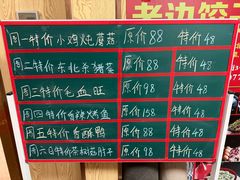 老边饺子
周一特价小鸡炖蘑菇 原价88 特价48
周二特价东北杀猪菜 原价88 特价48
周三特价毛血旺 原价98 特价48
周四特价香辣烤鱼 原价158 特价48
周五特价香酥鸭 原价88 特价48
周六日特价茶树菇肚子 原价98 特价48